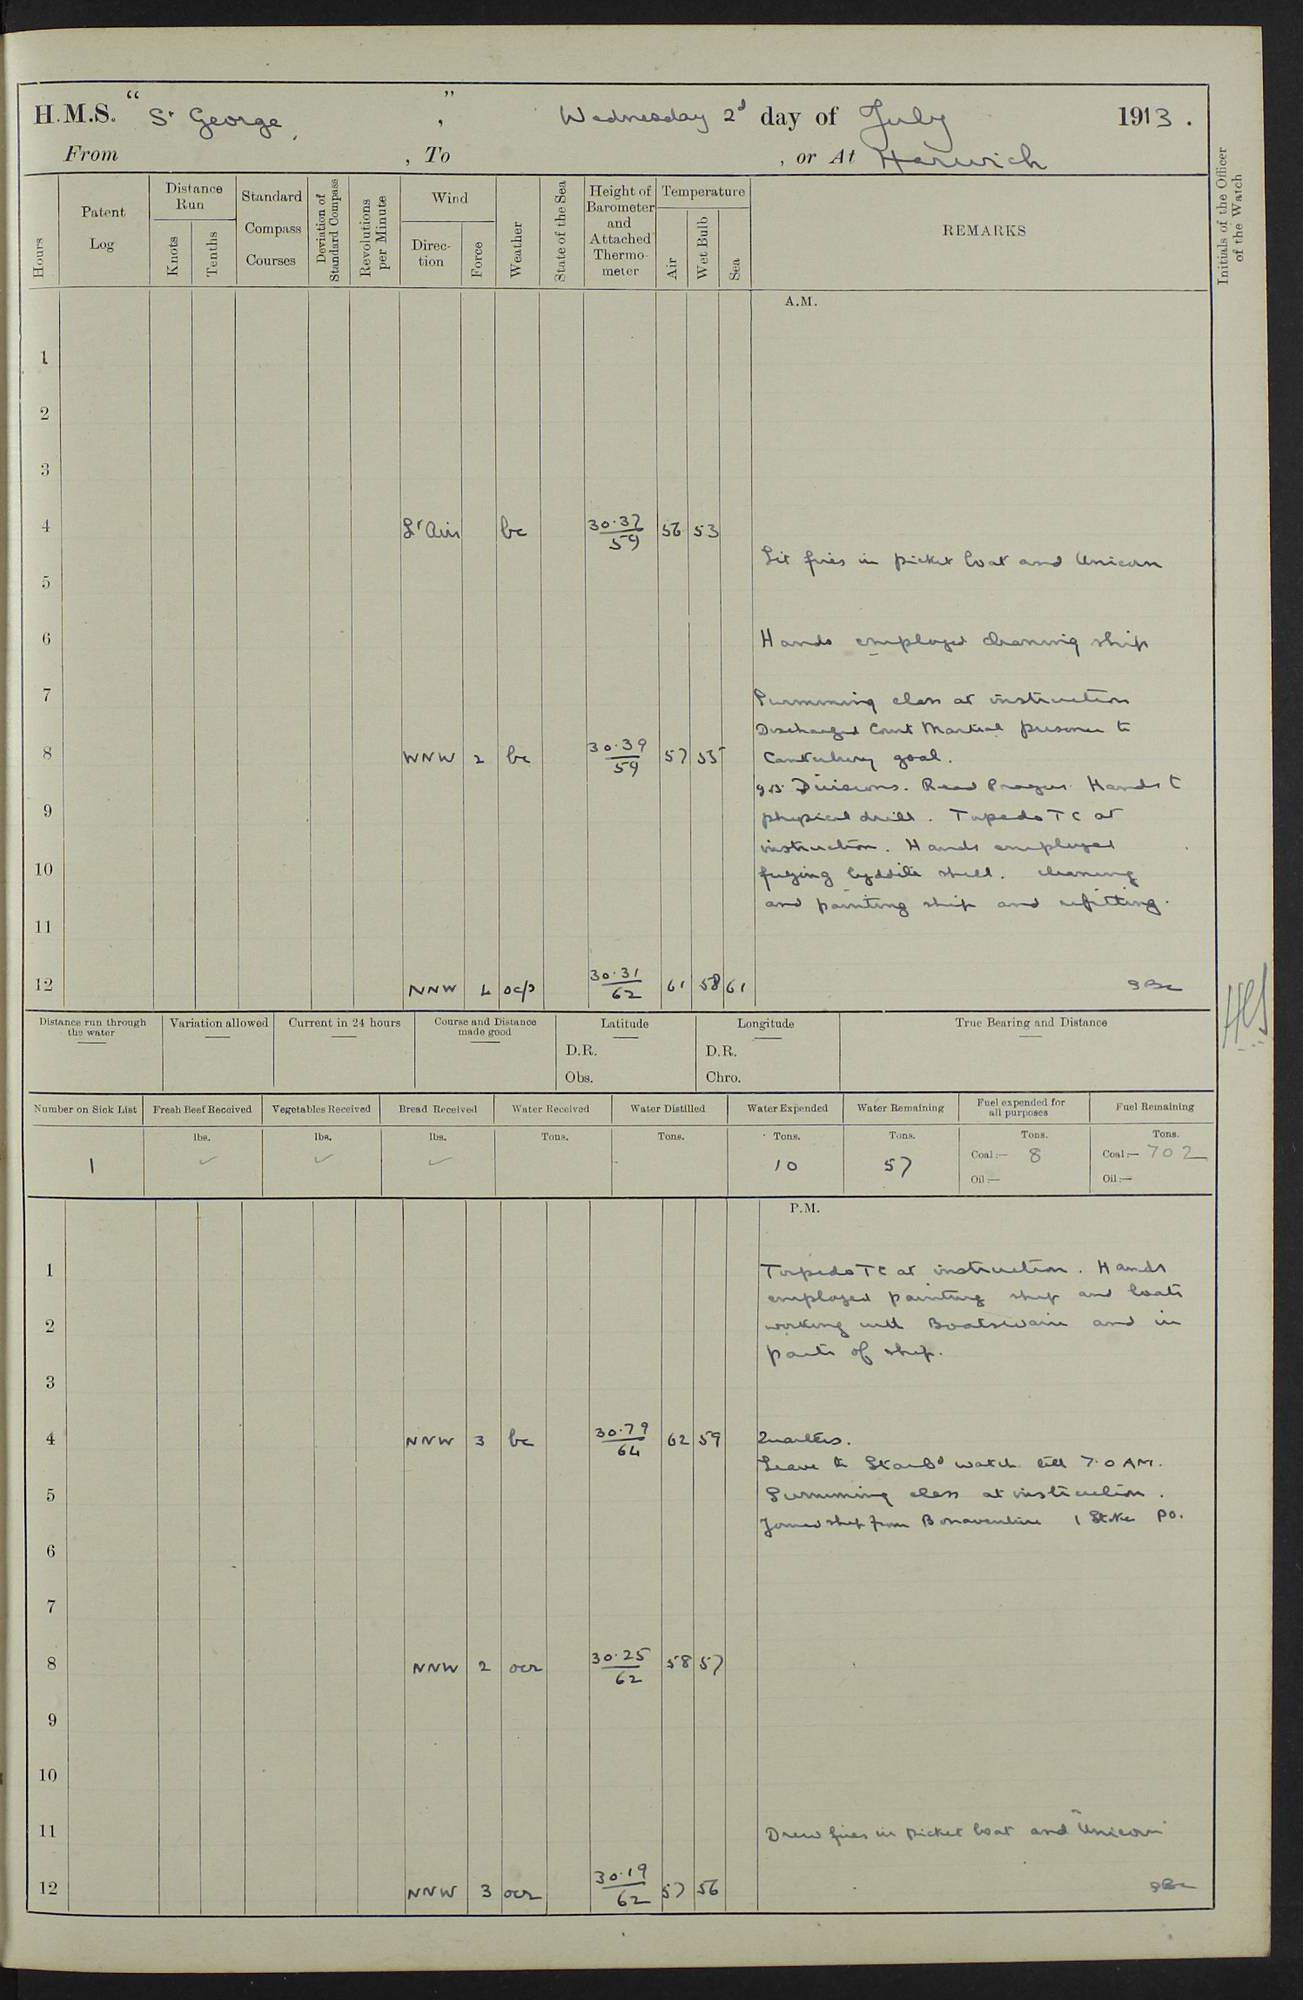 H.M.S. “ St George, ” , Wednesday 2d day of July 1913.
From , To , or At Harwich
Hours
Patent Log
Distance Run
Knots
Tenths
Standard Compass Courses
Deviation of Standard Compass
Revolutions per Minute
Wind
Direc-tion
Force
Weather
State of the Sea
Height of Barometer and Attached Thermo-meter
Temperature
Air
Wet Bulb
Sea
REMARKS
Initials of the Officer of the Watch
A.M.
1
2
3
4 Lt Airs bc 30.37 59 56 53
Lit fires in picket boat and Unicorn
5
6 Hands employed cleaning ship
7 Swimming class at instruction
Discharged Court Martial prisoner to
8 WNW 2 bc 30.39 59 57 55 Canterbury goal.
9.15 Divisions. Read Prayers. Hands to
9 physical drill. Torpedo TC at
instruction. Hands employed
10 fuzing lyddite shell. cleaning
and painting ship and refitting.
11
12 NNW 4 oc/p 30.31 62 61 58 61
Distance run through the water
Variation allowed
Current in 24 hours
Course and Distance made good
Latitude
D.R.
Obs.
Longitude
D.R.
Chro.
True Bearing and Distance
Number on Sick List
Fresh Beef Received
Vegetables Received
Bread Received
Water Received
Water Distilled
Water Expended
Water Remaining
Fuel expended for all purposes
Fuel Remaining
lbs. lbs. lbs. Tons. Tons. Tons. Tons. Tons. Tons.
1 ✓ ✓ ✓ 10 57 Coal:— 8 Coal:— 702
Oil:— Oil:—
P.M.
1 Torpedo TC at instruction. Hands
employed painting ship and boats
2 working with Boatswain and in
parts of ship.
3
4 NNW 3 bc 30.79 64 62 59 Quarters.
Leave to Starbd watch till 7.0 AM.
5 Swimming class at instruction.
Joined ship from Bonaventure 1 Stoker PO.
6
7
8 NNW 2 ocr 30.25 62 58 57
9
10
11 Drew fires in picket boat and "Unicorn"
12 NNW 3 ocr 30.19 62 57 56